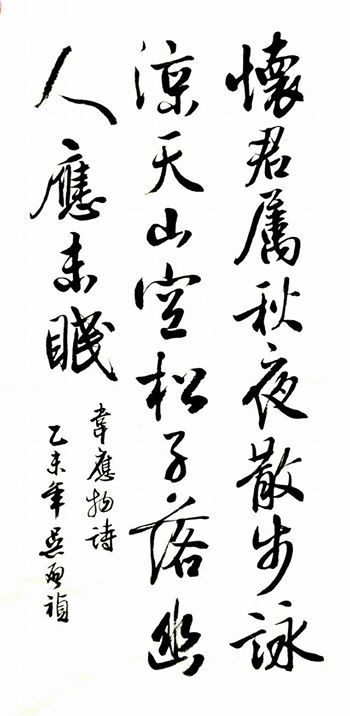 懷君屬秋夜散步詠
涼天山空松子落幽
人應未眠
韋應物詩
乙未年